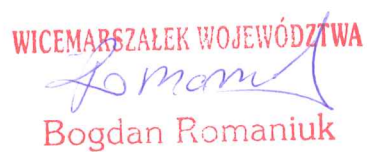 WICEMARSZAŁEK WOJEWÓDZTWA
Romaniuk
Bogdan Romaniuk